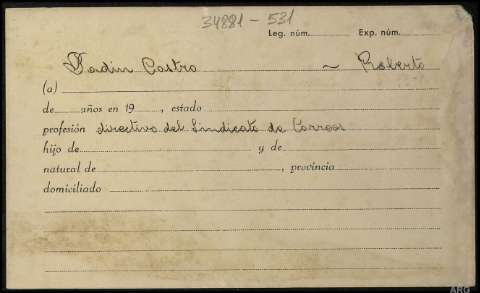 34881-531
Leg. núm. Exp. núm.
Castro ~ Roberto
(a)
de años en 19 , estado
profesión directivo del Sindicato de Correos
hijo de y de
natural de , provincia
domiciliado
ARG